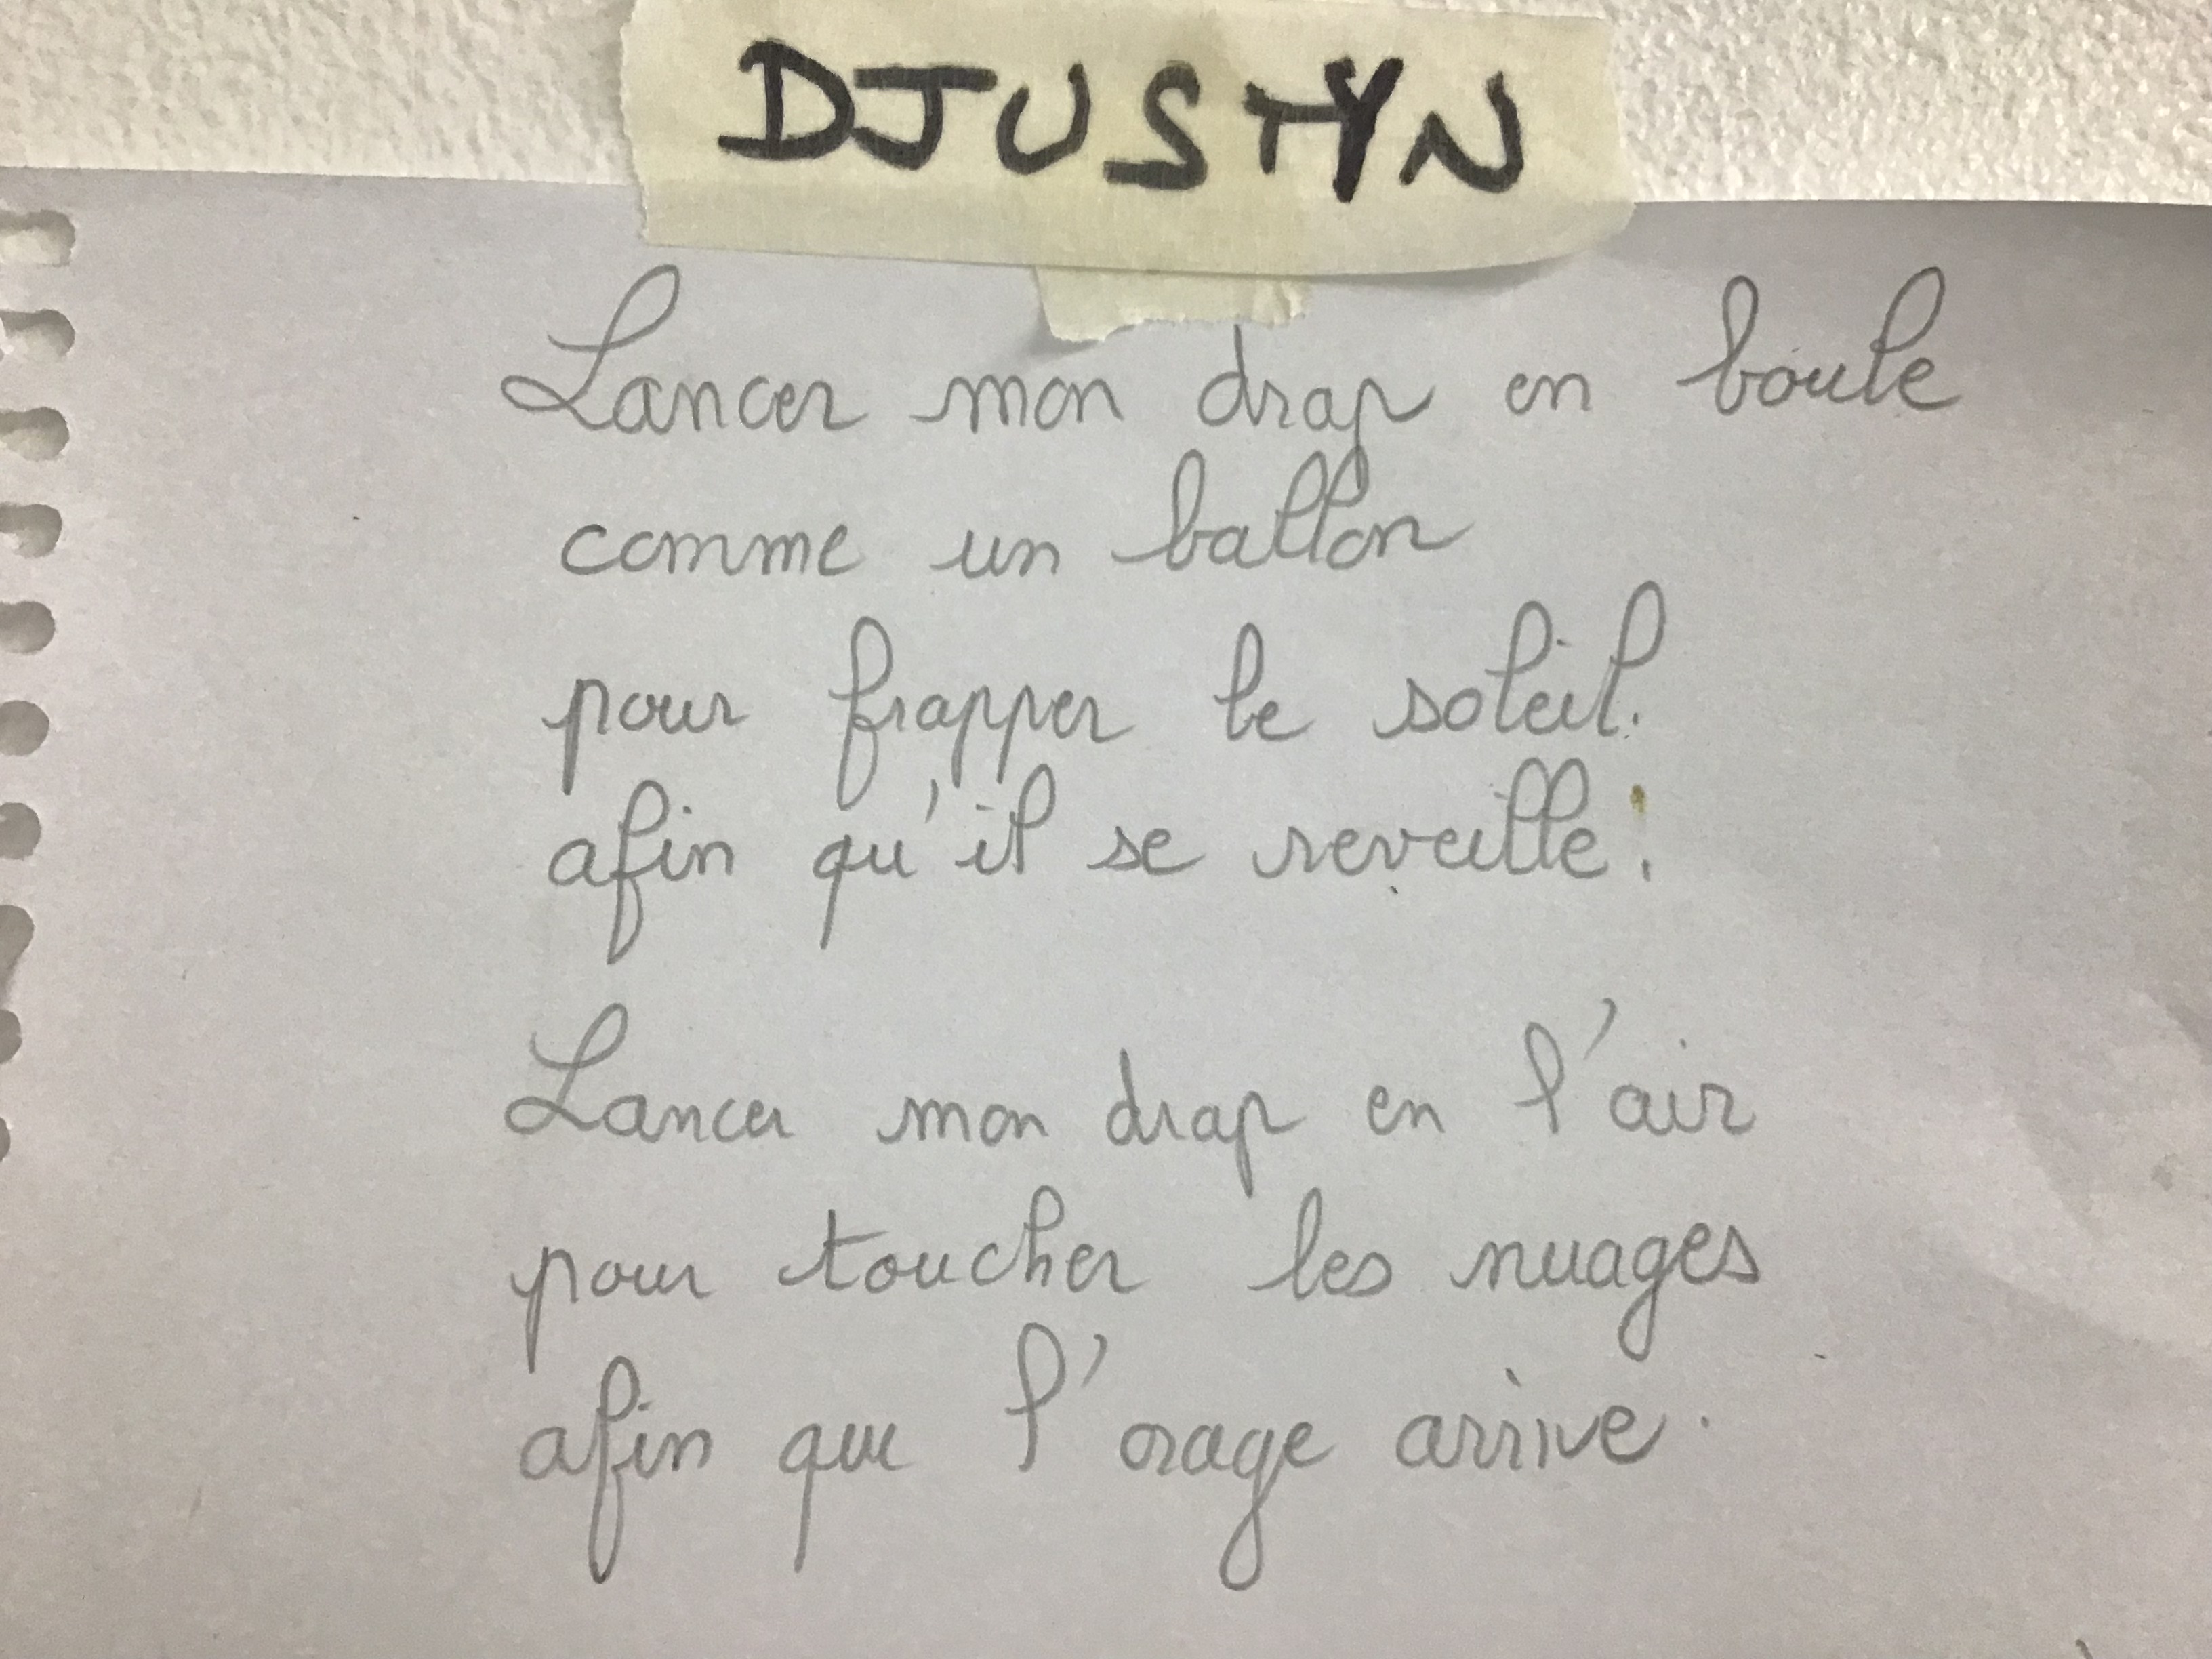 DJUSTYN
Lancer mon drap en boule
comme un ballon
pour frapper le soleil.
afin qu'il se reveille.
Lancer mon drap en l'air
pour toucher les nuages
afin que l'orage arrive.